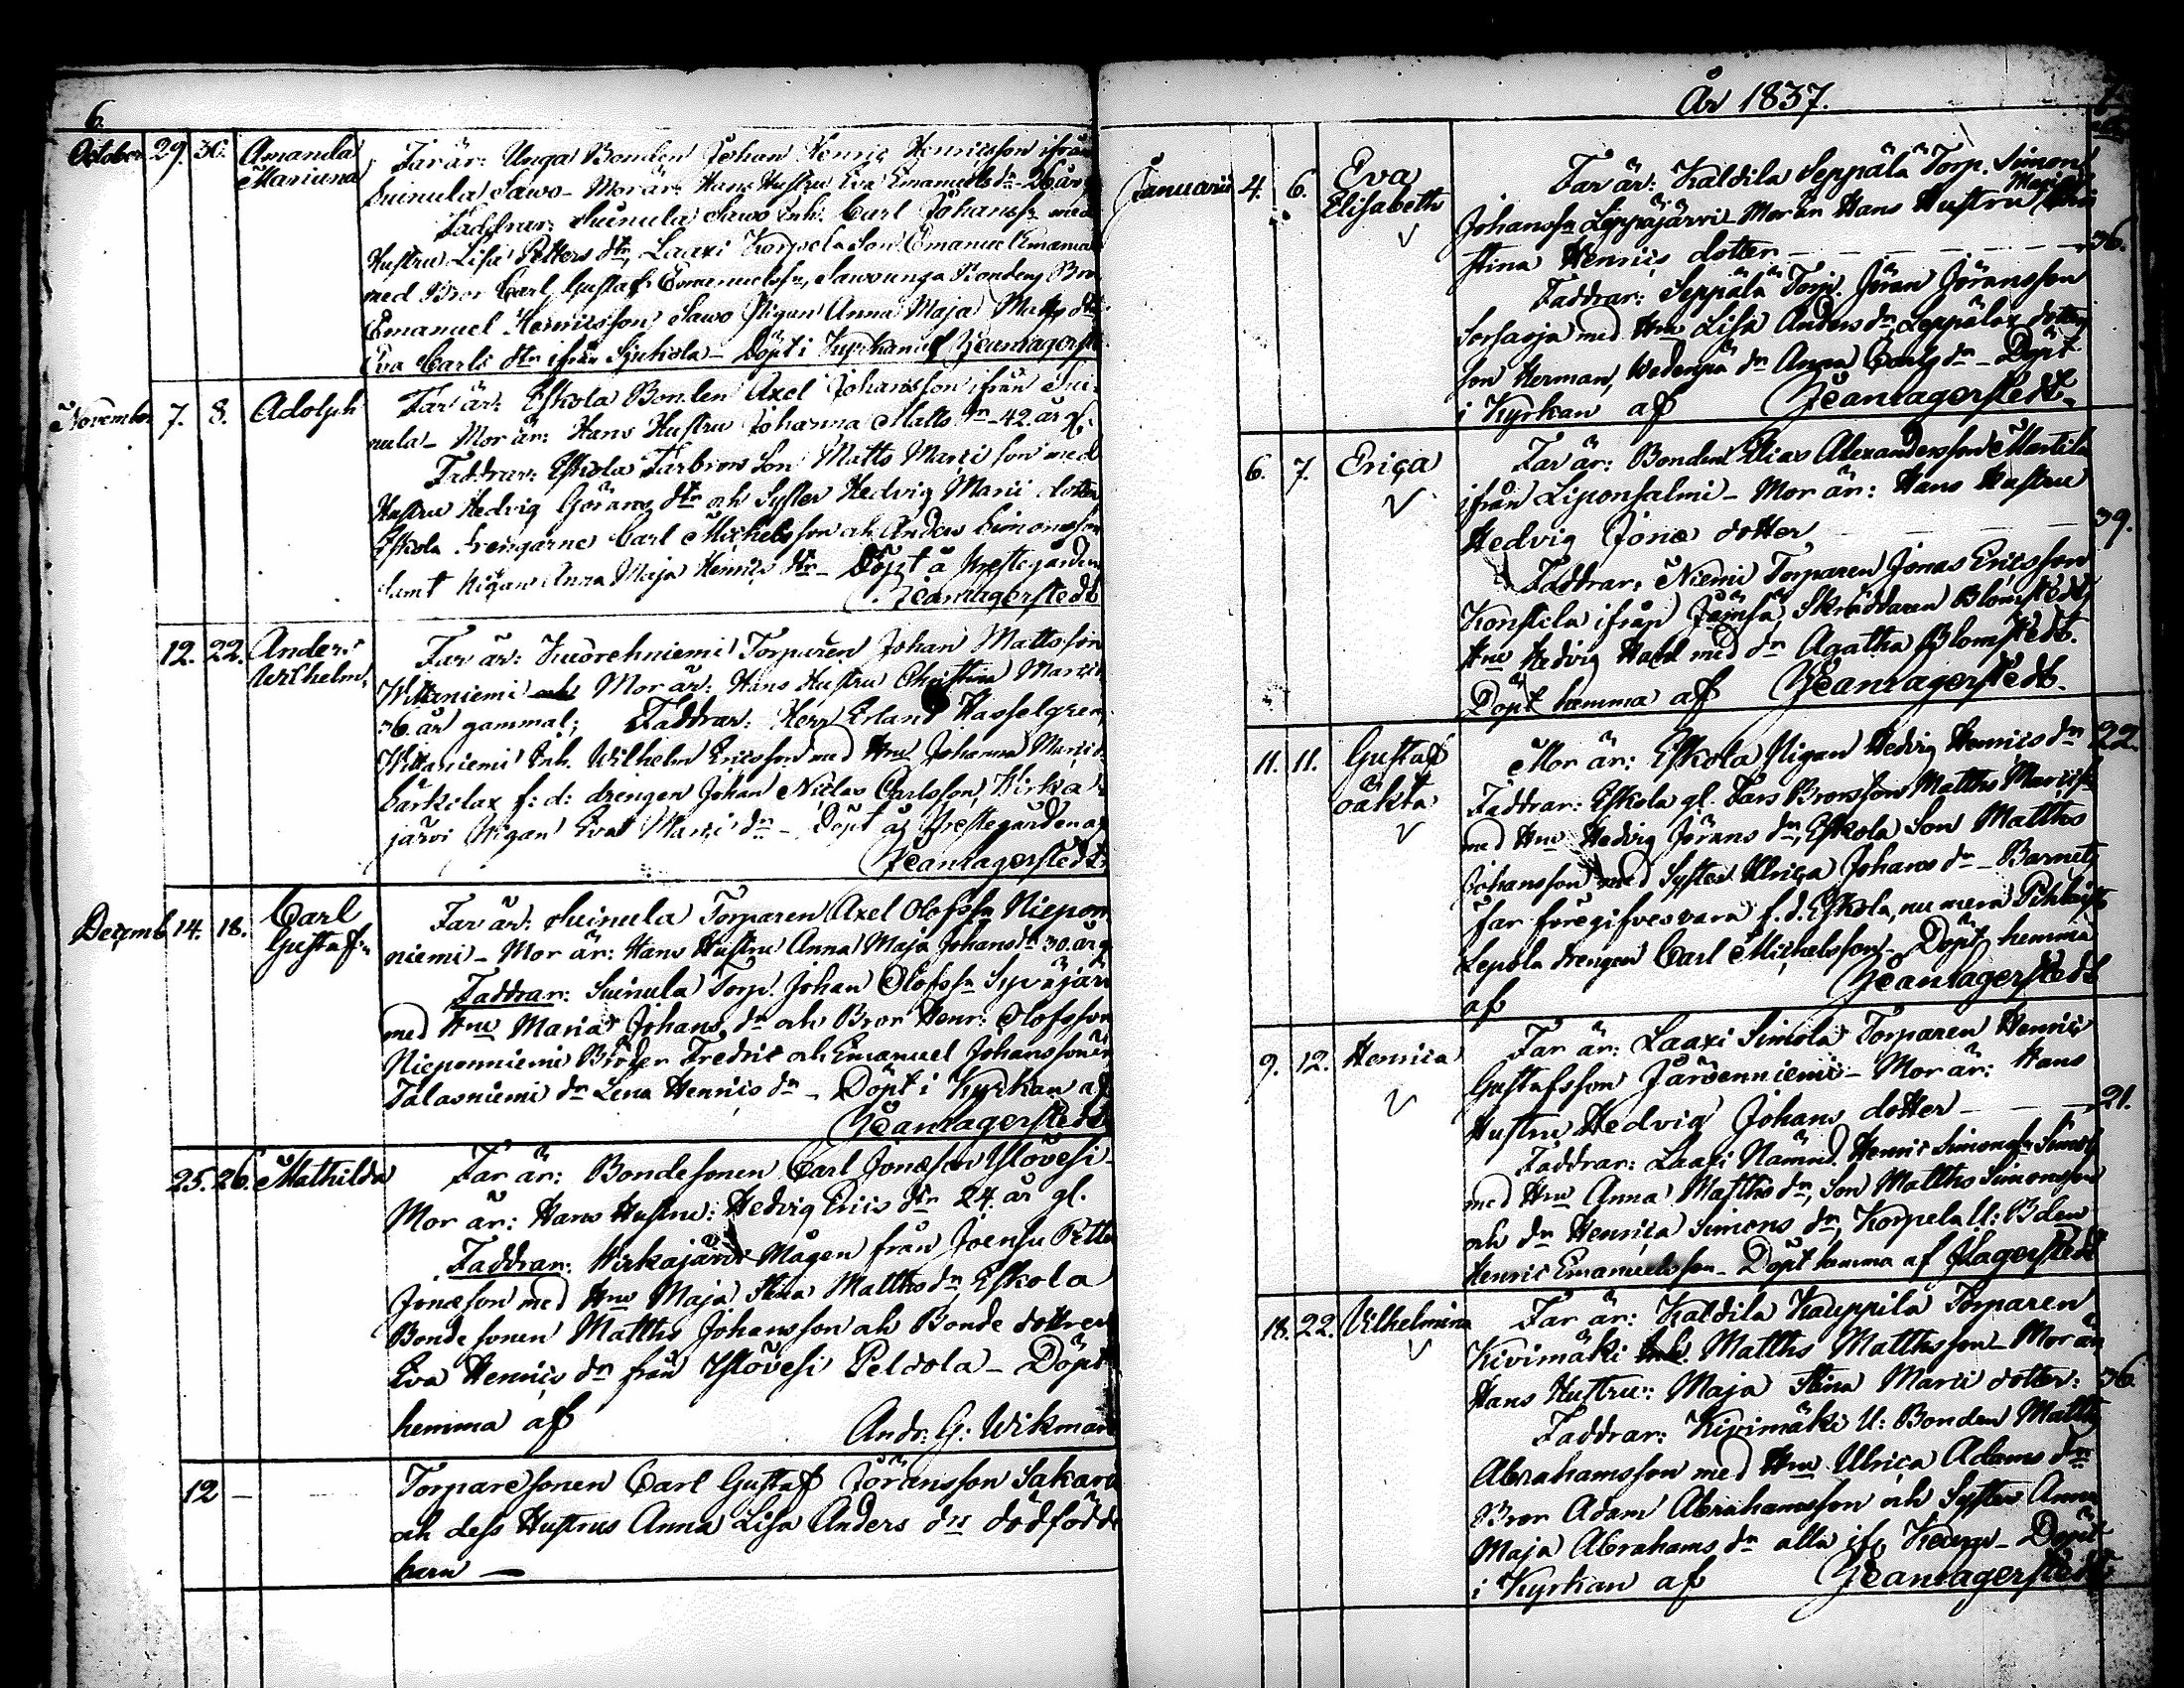 6.
October 29. 30. Amanda Mariana
Far är: Unga Bonden Johan Henric Henricsson ifrån
Suinula Sawo - Mor är: Hans Hustru Eva Emanuels dr - 26 år
Faddrar: Suinula Sawo Inh. Carl Johanss. med
Hustru Lisa Petters dtr, Laaxi Korpela Son Emanuel Emanuels
med Bror Carl Gustaf Emanuelss., Sawo unga Bondens Bror
Emanuel Henricsson, Sawo Pigan Anna Maja Matts dtr
Eva Carls dtr ifrån - Döpt i Kyrkan af Jean Lagerstedt
November 7. 8. Adolph
Far är: Eskola Bonden Axel Johansson ifrån Sui-
nula - Mor är: Hans Hustru Johanna Matts dr - 42. år gl.
Faddrar: Eskola Farbrors Son Matts Marci son med
Hustru Hedvig Görans dtr och Syster Hedvig Marci dotter
Eskola drengarne Carl Michelsson och Anders Simonsson
samt Pigan Anna Maja Henrics dtr - Döpt å Prestegården
Jean Lagerstedt
12. 22. Anders Wilhelm
Far är: Kuorehniemi Torparen Johan Mattsson
Wittaniemi och Mor är: Hans Hustru Christina Marci
36 år gammal; Faddrar: Herr Erland Hasselgren,
Wittaniemi Inh. Wilhelm Ericsson med Hru Johanna Marci dr
Särkilax f: d: drengen Johan Niclas Carlsson, Kirka-
järvi Pigan Eva Marci dr - Döpt å Prestegården af
Jean Lagerstedt
Decemb 14. 18. Carl Gustaf
Far är: Suinula Torparen Axel Olofsson Niepon-
niemi - Mor är: Hans Hustru Anna Maja Johans dr 30. år g
Faddrar: Suinula Torp. Johan Olofss. Syväjärvi
med Hru Maria Johans dr och Bror Henr: Olofsson
Nieponniemi Bröder Fredric och Emanuel Johanssöner
Talasniemi dr Lena Henrics dr - Döpt i Kyrkan af
Jean Lagerstedt
25. 26. Mathilda
Far är: Bondesonen Carl Jonæson Ylövesi -
Mor är: Hans Hustru: Hedvig Erics dtr 24. år gl.
Faddrar: Kirkajärvi Mågen från Joensu Petter
Jonæson med Hru Maja Stina Matths dr, Eskola
Bonde sonen Matths Johansson och Bonde dottren
Eva Henrics dr från Ylövesi Peldola - Döpt
hemma af Andr: G: Wikman
12 -
Torparesonen Carl Gustaf Göransson Sakari
och dess Hustrus Anna Lisa Anders drs dödfödde
barn -
År 1837.
Januarii 4. 6. Eva Elisabeth
Far är: Kaldila Seppälä Torp. Simon
Johanss. Leppäjärvi - Mor är Hans Hustru Maja
stina Henrics dotter - 36.
Faddrar: Seppälä Torp. Jöran Jöransson
Sorsasja med Hru Lisa Anders dr, Seppälax dotter
son Herman, Wedenpä dr Anna Carls dr - Döpt
i Kyrkan af Jean Lagerstedt.
6. 7. Erica
Far är: Bonden Elias Alexandersson Martila
ifrån Liponsalmi - Mor är: Hans Hustru
Hedvig Jonæ dotter - 39.
Faddrar: Niemi Torparen Jonas Ericsson
Konstila ifrån Jämsä, Skräddaren Blomstedt,
Hru Hedvig med dr Agatha Blomstedt.
Döpt hemma af Jean Lagerstedt.
11. 11. Gustaf oäkta
Mor är: Eskola Pigan Hedvig Henrics dr 22.
Faddrar: Eskola gl. Fars Brorson Matths Marciss.
med Hru Hedvig Jörans dr, Eskola Son Matths
Johansson med Syster Ulrica Johans dr - Barnets
far föregifves vara f. d. Eskola, nu mera
Lepola drengen Carl Michelsson - Döpt hemma
af Jean Lagerstedt
9. 12. Henrica
Far är: Laaxi Simola Torparen Henric
Gustafsson Järvenniemi - Mor är: Hans
Hustru Hedvig Johans dotter - 21.
Faddrar: Laaxi Nämnd. Henric Simonss. Simola
med Hru Anna Matths dr, Son Matths Simonsson
och dr Henrica Simons dr, Korpela U: Bden
Henric Emanuelsson - Döpt hemma af J Lagerstedt
18. 22. Vilhelmina
Far är: Kaldila Kauppila Torparen
Kivimäki Inh. Matths Matthsson - Mor är
Hans Hustru: Maja Stina Marci dotter: 36.
Faddrar: Kivimäki U: Bonden Matths
Abrahamsson med Hru Ulrica Adams dr
Bror Adam Abrahamsson och Syster Anna
Maja Abrahams dr alla ifr. Keurw - Döpt
i Kyrkan af Jean Lagerstedt